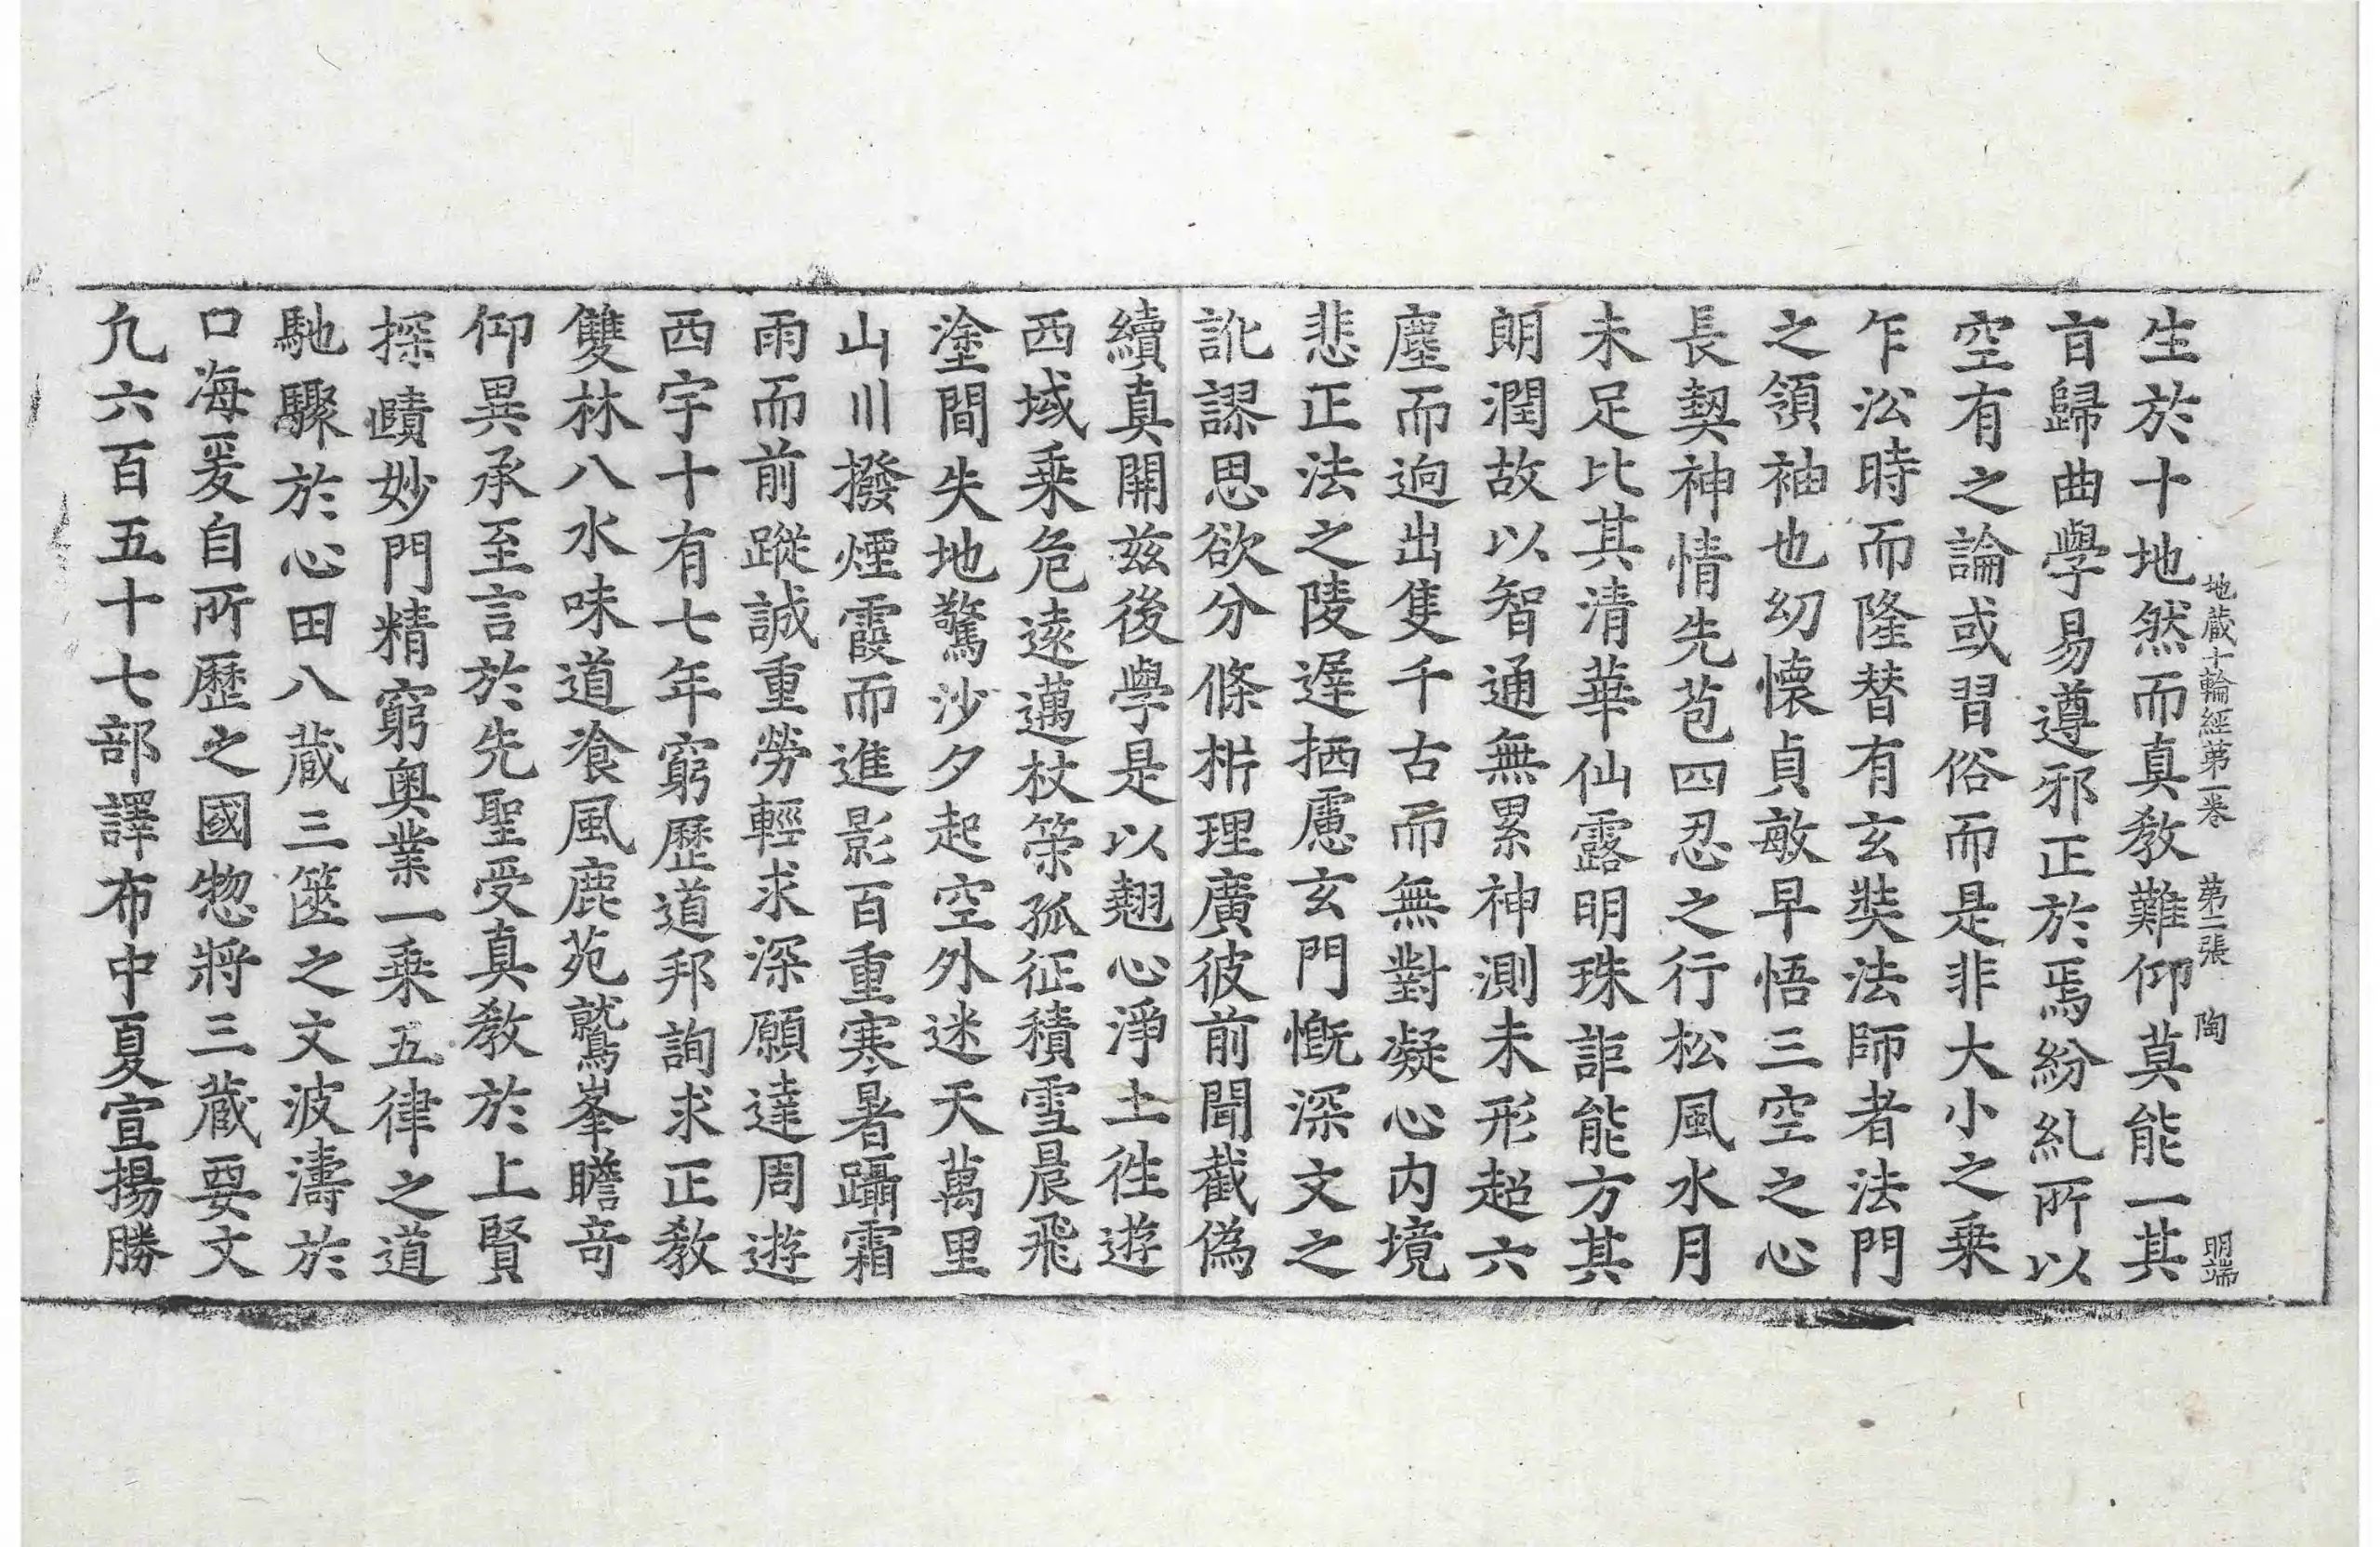 地蔵十輪經第一卷 第二張 陶 明端
生於十地然而真教難仰莫能一其
㫖歸曲學易遵邪正於焉紛糺所以
空有之論或習俗而是非大小之乗
乍㳂時而隆替有玄奘法師者法門
之領袖也㓜懐貞敏早悟三空之心
長契神情先苞四忍之行松風水月
未足比其清華仙露明珠詎能方其
朗潤故以智通無累神測未形超六
塵而逈出隻千古而無對凝心内境
悲正法之陵遟栖慮玄門慨深文之
訛謬思欲分條㭊理廣彼前聞截偽
續真開茲後學是以翹心淨土徃遊
西域乗危逺邁杖䇿孤征積雪晨飛
塗間失地驚沙夕起空外迷天萬里
山川撥煙霞而進影百重寒暑躡霜
雨而前蹤誠重勞輕求深願達周遊
西宇十有七年窮歷道邦詢求正教
雙林八水味道飡風鹿苑鷲峯瞻竒
仰異承至言於先聖受真教於上賢
探賾妙門精窮奥業一乗五律之道
馳驟於心田八蔵三篋之文波濤於
口海爰自所歷之國惣將三蔵要文
凢六百五十七部譯布中夏宣揚勝